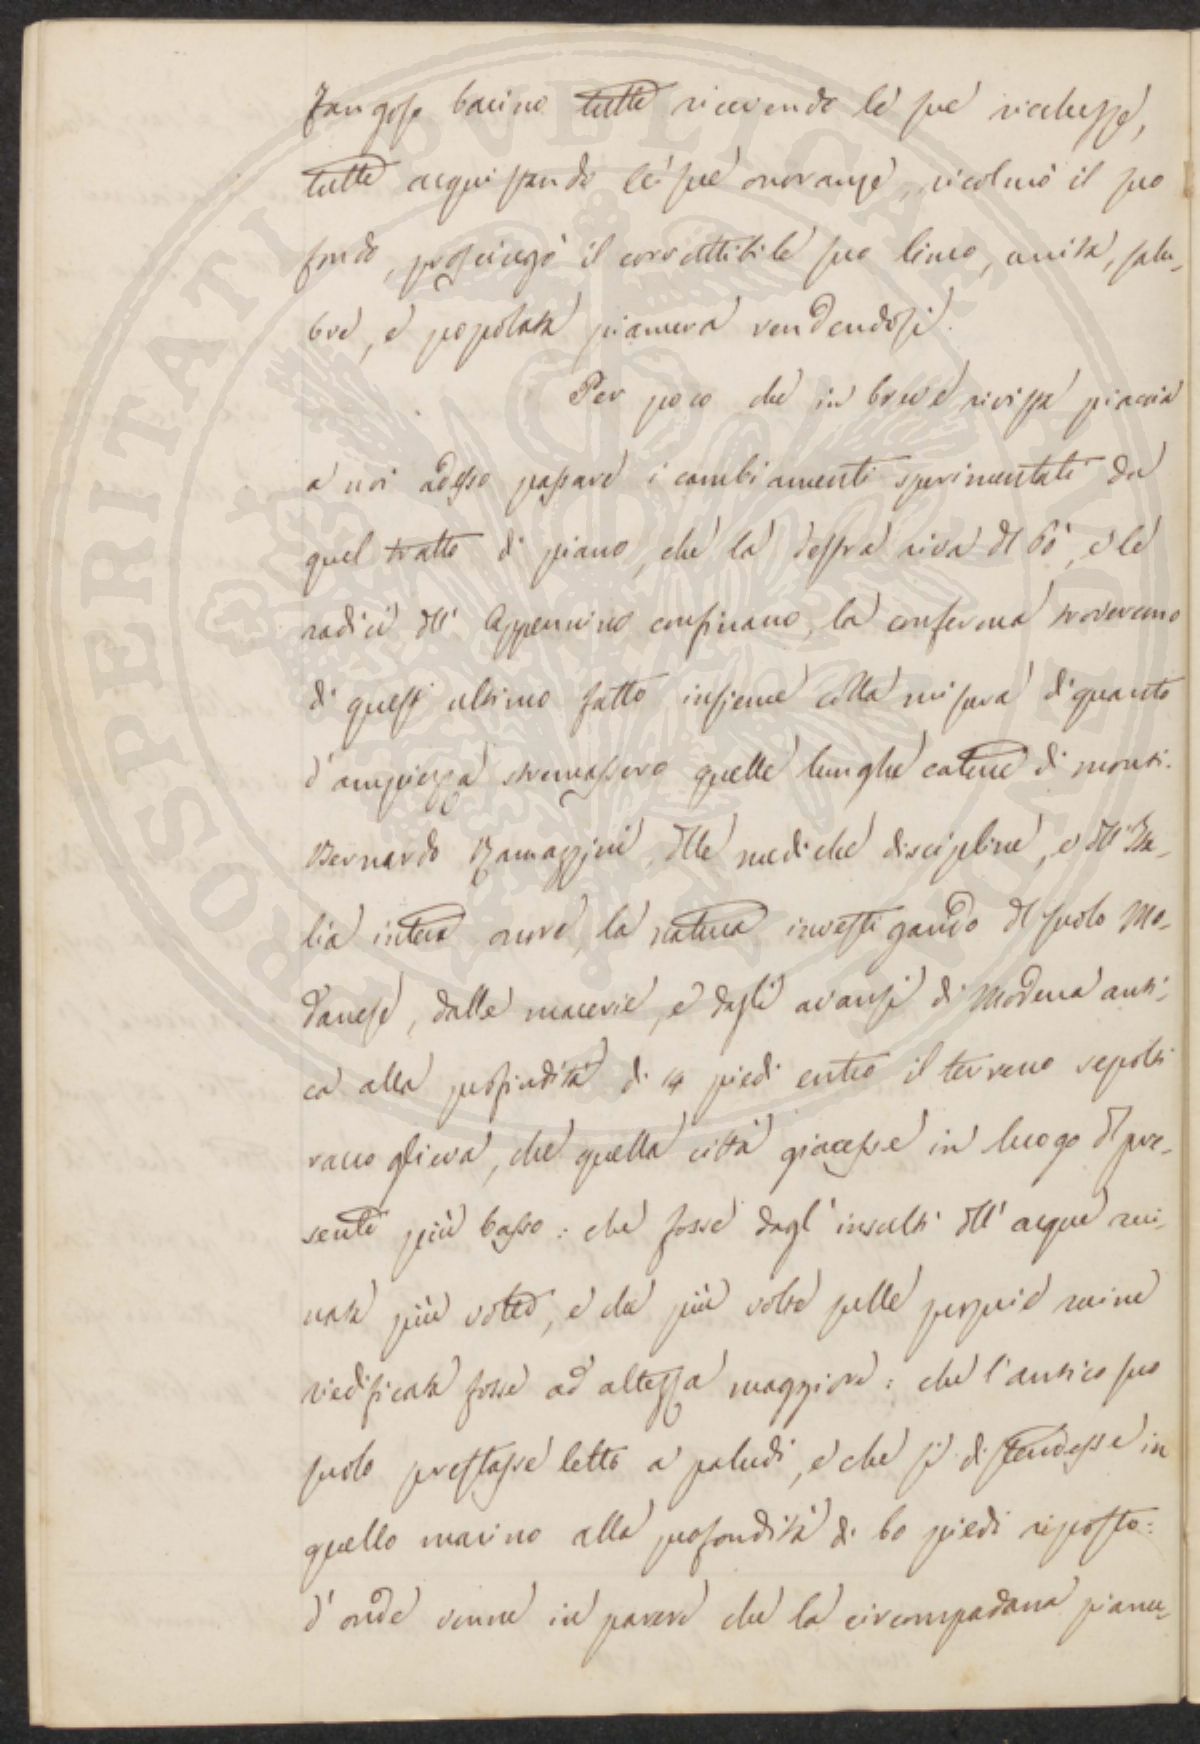 fangoso bacino tutte ricevendo le sue ricchezze,
tutte acquistando le sue onoranze, ricolmò il suo
fondo, prosciugò il corrottibile suo limo, unita, salu-
bre, e popolata pianura rendendosi.
Per poco che in breve rivista piaccia
a noi adesso passare i cambiamenti sperimentati da
quel tratto di piano, che la destra riva del Pò, e le
radici dell' Appennino confinano, la conferma troveremo
di quest' ultimo fatto insieme colla misura di quanto
d'ampiezza stremassero quelle lunghe catene di monti.
Bernardo Ramazzini, delle mediche discipline, e dell' Ita-
lia intera onore, la natura investigando del suolo Mo-
danese, dalle macerie, e dagli avanzi di Modena anti-
ca alla profondità di 14 piedi entro il terreno sepolti
raccoglieva, che quella città giacesse in luogo del pre-
sente più basso: che fosse dagl' insulti dell' acque rui-
nata più volte, e da più volte sulle proprie ruine
riedificata fosse ad altezza maggiore: che l'antico suo
suolo prestasse letto a paludi, e che si distendesse in
quello marino alla profondità di 60 piedi riposto:
d'onde venne in parere che la circompadana pianu-